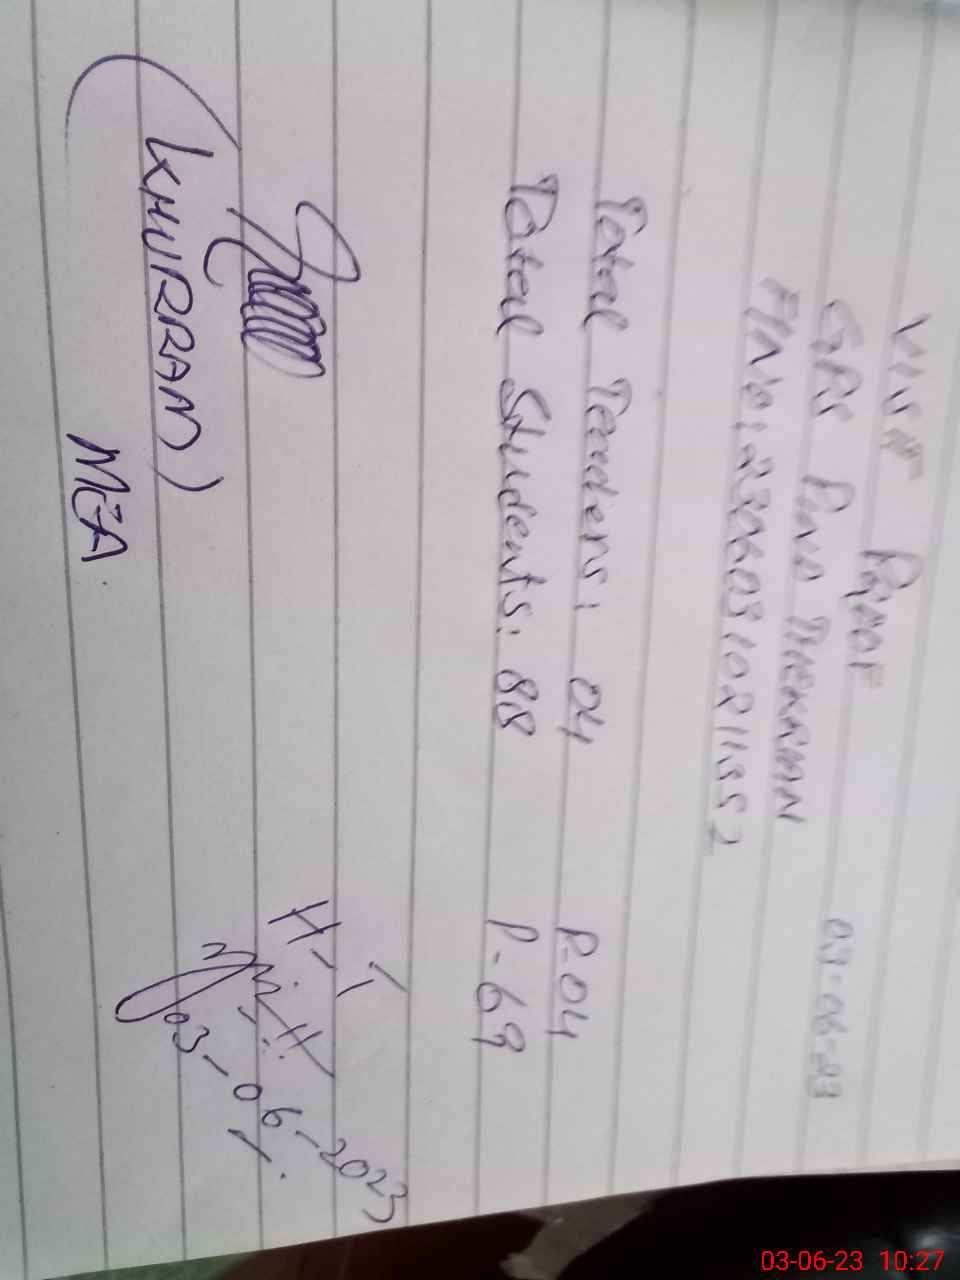 VISIT PROOF
GPS PIND THEKRIAN 03-06-23
Total Teachers: 04 P-04
Total Students: 88 P-69
H.T
03-06-2023
(KHURRAM)
MEA
03-06-23 10:27